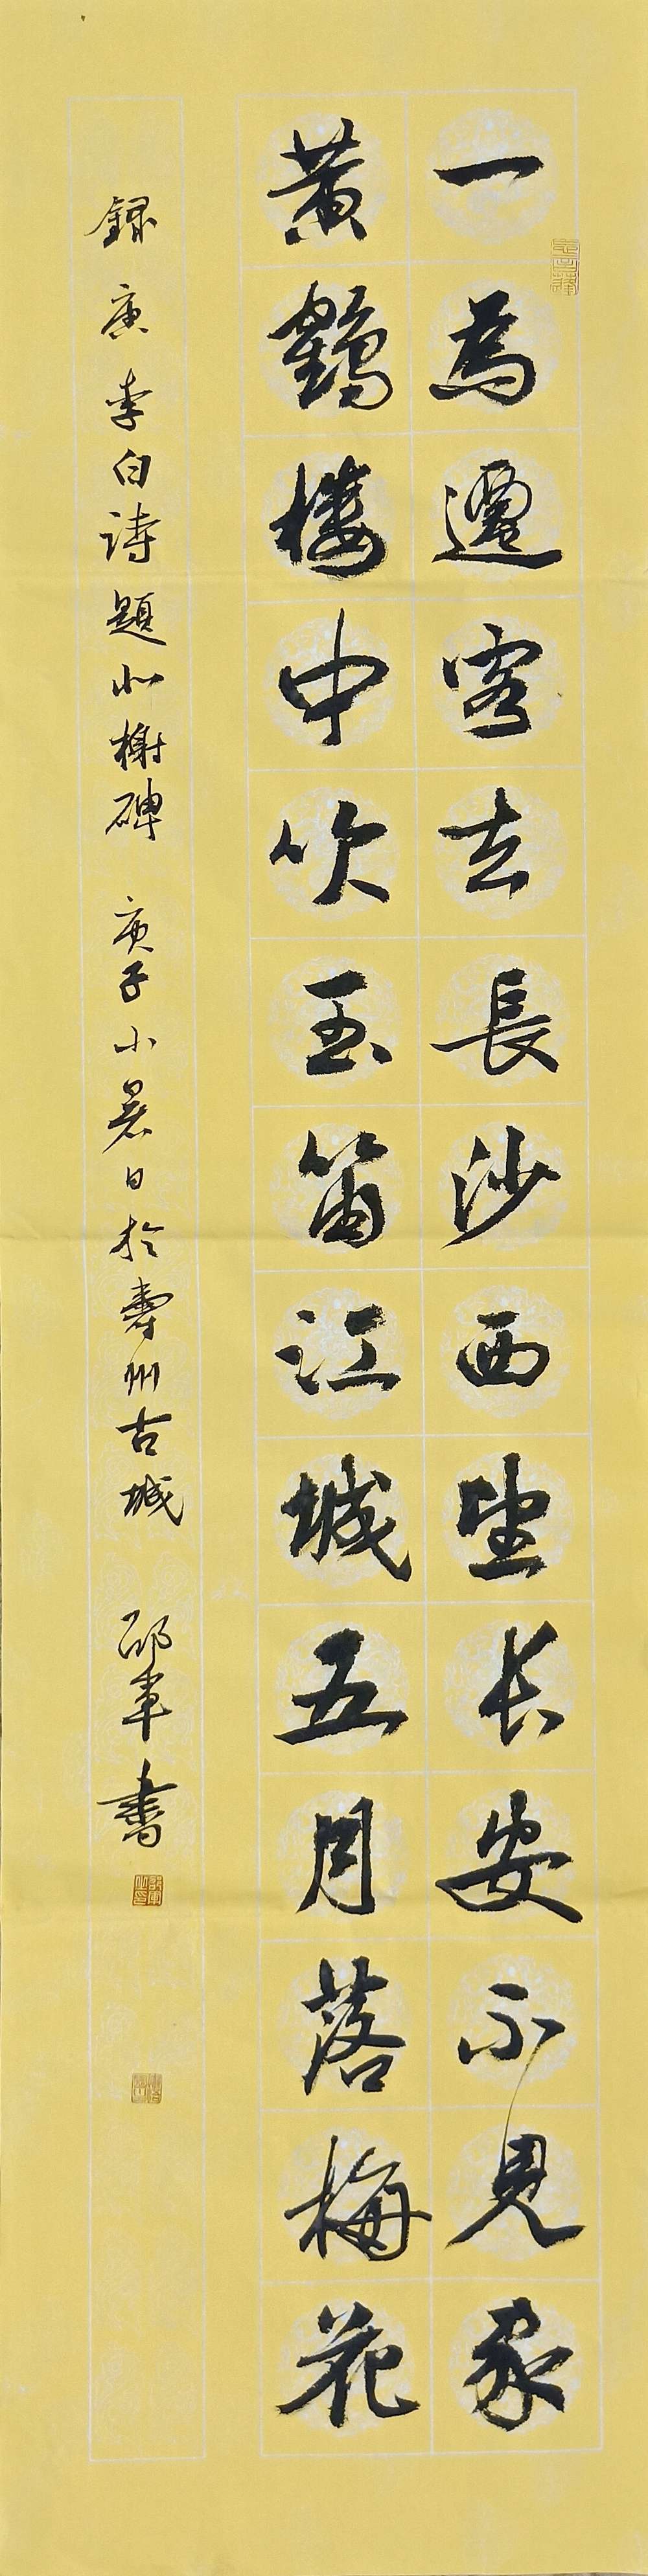 一為遷客去長沙西望长安不見家
黄鶴楼中吹玉笛江城五月落梅花
録唐李白诗題北榭碑 庚子小暑日於壽州古城 邵軍書